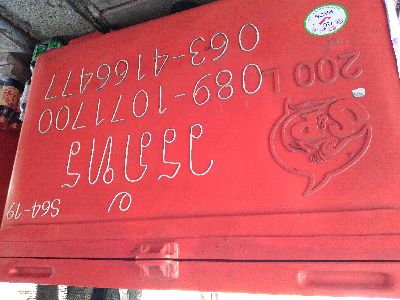 S64-19
วรภัทร
SP
200 L
089-1071700
063-4166477